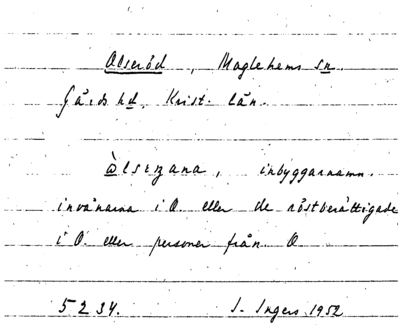 Olseröd, Maglehems sn
Gärds hd, Krist. län.
inbyggarnamn.
invånarna i O. eller de röstberättigade
i O. eller personer från O.
5234. I. Ingers 1952